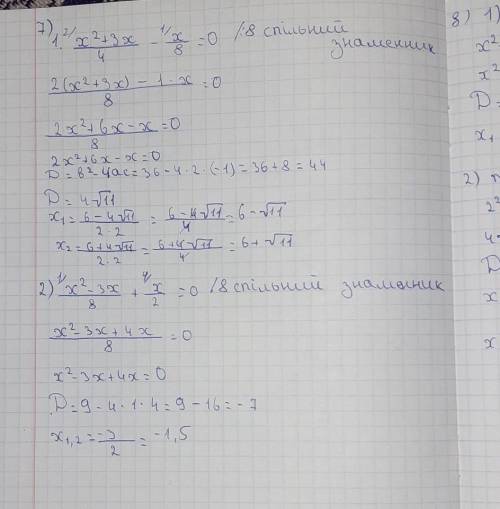 7) 1. 2/ x²+3x/4 - 1/ x/8 = 0 /·8 спільний
знаменник
2(x²+3x) - 1·x/8 = 0
2x²+6x-x/8 = 0
2x²+6x-x=0
D = b²-4ac = 36-4·2·(-1) = 36+8 = 44
D = 4√11
x₁ = 6-4√11/2·2 = 6-4√11/4 = 6-√11
x₂ = 6+4√11/2·2 = 6+4√11/4 = 6+√11
2) 1/ x²-3x/8 + 4/ x/2 = 0 /8 спільний знаменник
x²-3x+4x/8 = 0
x²-3x+4x=0
D = 9-4·1·4 = 9-16 = -7
x₁,₂ = -3/2 = -1,5
8) 1)
x²
x²
D=
x₁
2)
2²
4
D
x
x